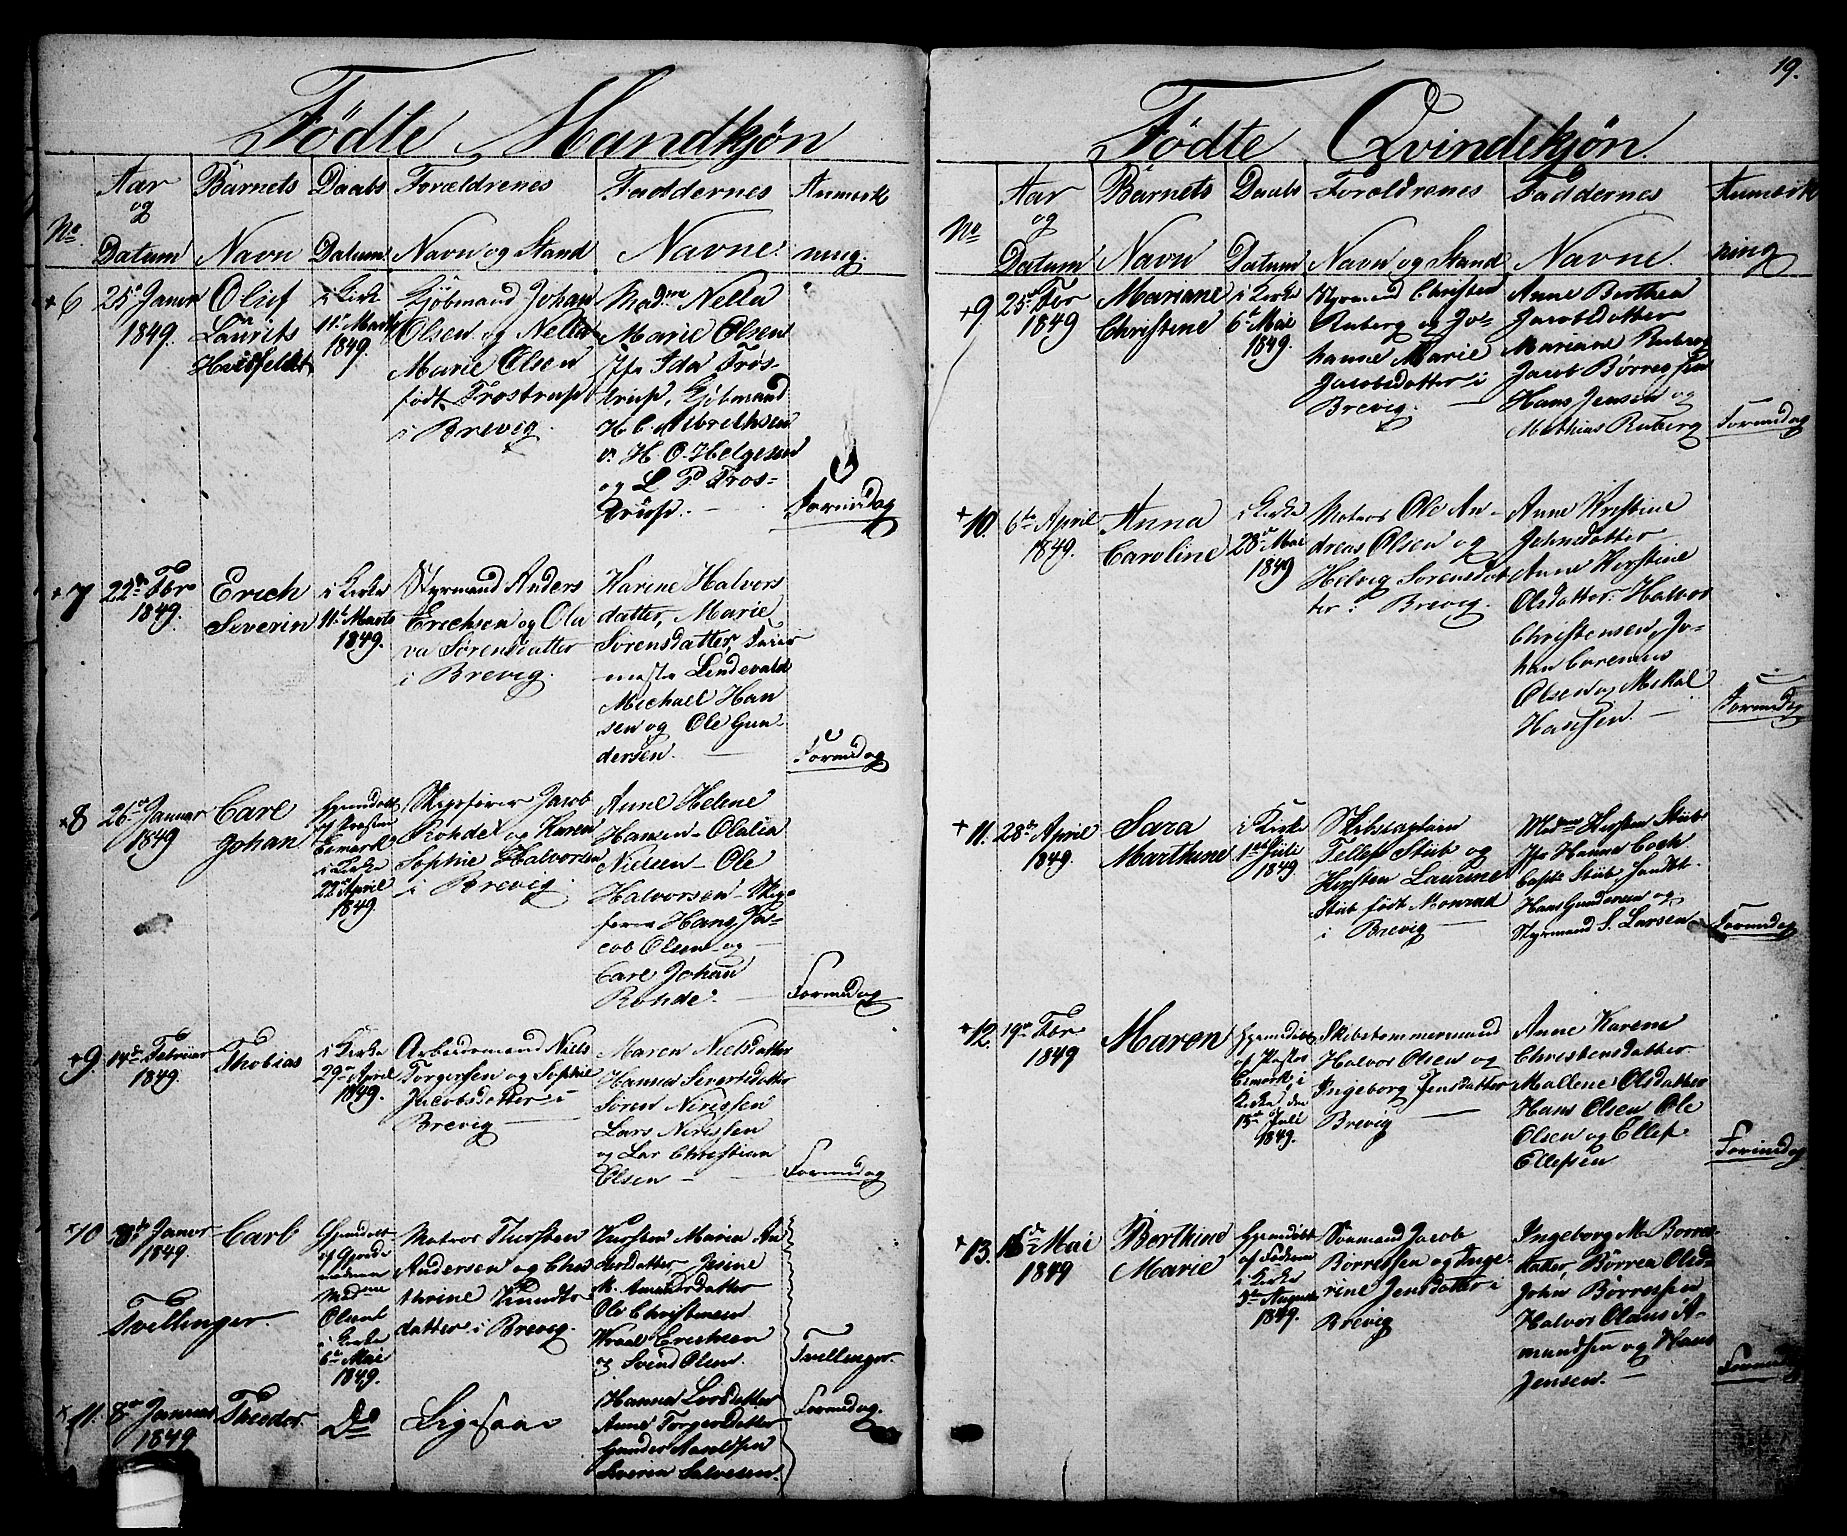 19.
Fødte Mandkjøn
No
Aar
og
Datum
Barnets
Navn
Daabs
Datum
Forældrenes
Navn og Stand
Faddernes
Navne.
Anmærk
ning.
+6
25de Januar
1849.
Oluf
Laurits
Hvitfeldt
i Kirke
11te Marts
1849.
Kjøbmand Johan
Olsen og Nella
Marie Olsen
født Frostrup
i Brevig.
Madme Nella
Marie Olsen
Jfr Ida Frøs-
trup, Kjøbmænd
H. C. Albrethsen
H. O. Helgesen
og L. P. Fros-
trup.
Formidag
+7
22de Fbr
1849.
Erich
Severin
i Kirke
11te Marts
1849.
Styrmand Anders
Erichsen og Ola
va Sørensdatter
i Brevig.
Karine Halvors
datter, Marie
Sørensdatter,
Lindevald
Michael Han
sen og Ole Gun
dersen.
Formidag
+8
26de Januar
1849
Carl
Johan
Hjemdøbt
af Præsten
Esmark
i Kirke
22de April
1849
Skipsfører Jacob
Rohde og Karen
Sophie Halvorsen
i Brevig.
Anne Helene
Hansen - Olalia
Nielsen - Ole
Halvorsen - Skips
fører Hans Ja-
cob Olsen og
Carl Johan
Rohde.
Formidag
+9
14de Februar
1849.
Thobias
i Kirke
29de April
1849.
Arbeidsmand Niels
Torgersen og Sophie
Jacobsdatter i
Brevig
Maren Nielsdatter
Hanna Sivertsdatter
Søren Nirissen
Lars Nirissen
og Lar Christian
Olsen
Formidag
+10
28de Januar
1849.
Tvellinger.
Carl
Hjemdøbt
af Gjorde
moderen
Madme
Olsen
i Kirke
6te Mai
1849.
Matros Thorsten
Andersen og Chs
athrine Knuds
datter i Brevig.
Thorsten Maria An
dersdatter Jesine
K. Amundsdatter
Ole Christensen
Wraal Erichsen
og Svend Olsen.
Tvillinger.
+11.
8de Januar
1849
Theodor.
Do
Ligesaa
Hanna Larsdatter
Anne Torgersdatter
Gunder Aaroldsen
Severin Salvesen.
Formidag.
Fødte Qvindekjøn.
No
Aar
og
Datum
Barnets
Navn
Daabs
Datum
Forældrenes
Navn og Stand
Faddernes
Navne.
Anmærk
ning
+9.
25de Fbr
1849
Mariane
Christine
i Kirke
6te Mai
1849.
Styrmand Christen
Ruberg og Jo-
hanne Marie
Jacobsdatter i
Brevig.
Anne Berthea
Jacobsdatter
Mariane Ruberg
Jacob Børressen
Hans Jensen og
Mathias Ruberg
Formidag
+10.
6te April
1849.
Anna
Caroline
i Kirke
28de Mai
1849
Matros Ole An-
dreas Olsen og
Helvig Sørensdat
ter i Brevig.
Anne Kirstine
Johnsdatter
Anne Kirstine
Olsdatter. Halvor
Christensen, Jo-
han Corenius
Olsen og Mikal
Hansen.
Formidag
+11.
28de April
1849.
Sara
Marthine
i Kirke
1ste Juli
1849
Skibscaptain
Tellef Stub og
Kirsten Laurine
Stub født Monrad
i Brevig
Madme Kirsten Stub
Jfr Hanne Coch
Captn Stub
Hans Gundersen og
Styrmand S. Larsen
Formidag
+12.
19de Fbr
1849
Maren
Hjemdøbt
af Pastor
Esmark, i
Kirke den
15de Juli
1849.
Skibstømmermand
Halvor Olsen og
Ingeborg Jensdatter
Brevig
Anne Karene
Christensdatter
Mallene Olsdatter
Hans Olsen Ole
Olsen og Ellef
Ellefsen
Formidag
+13.
16de Mai
1849
Berthine
Marie
Hjemdøbt
af Faderen
i Kirke
5te August
1849.
Sømand Jacob
Børressen og Inge-
rine Jensdatter i
Brevig
Ingeborg M. Børres-
datter Børrea Olsd.
John Børressen
Halvor Olaus A-
mundsen og Hans
Jensen.
Formidag